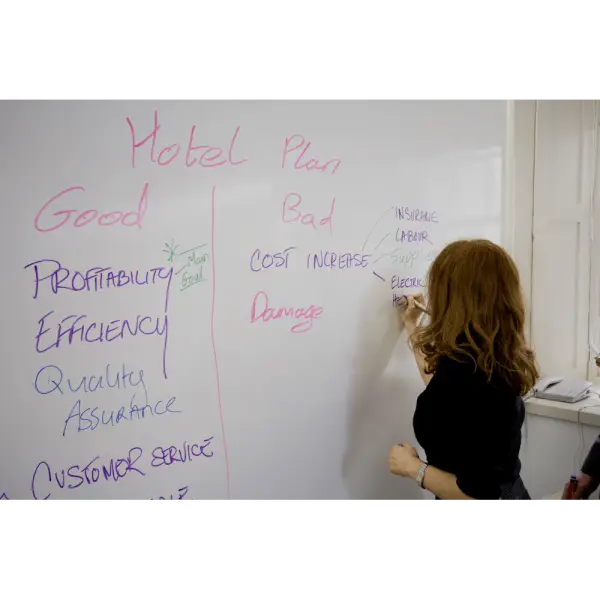 Hotel Plan
Good
PROFITABILITY
Main
Goal
EFFICIENCY
Quality
ASSURANCE
CUSTOMER SERVICE
Bad
COST INCREASE
INSURANE
LABOUR
Damage